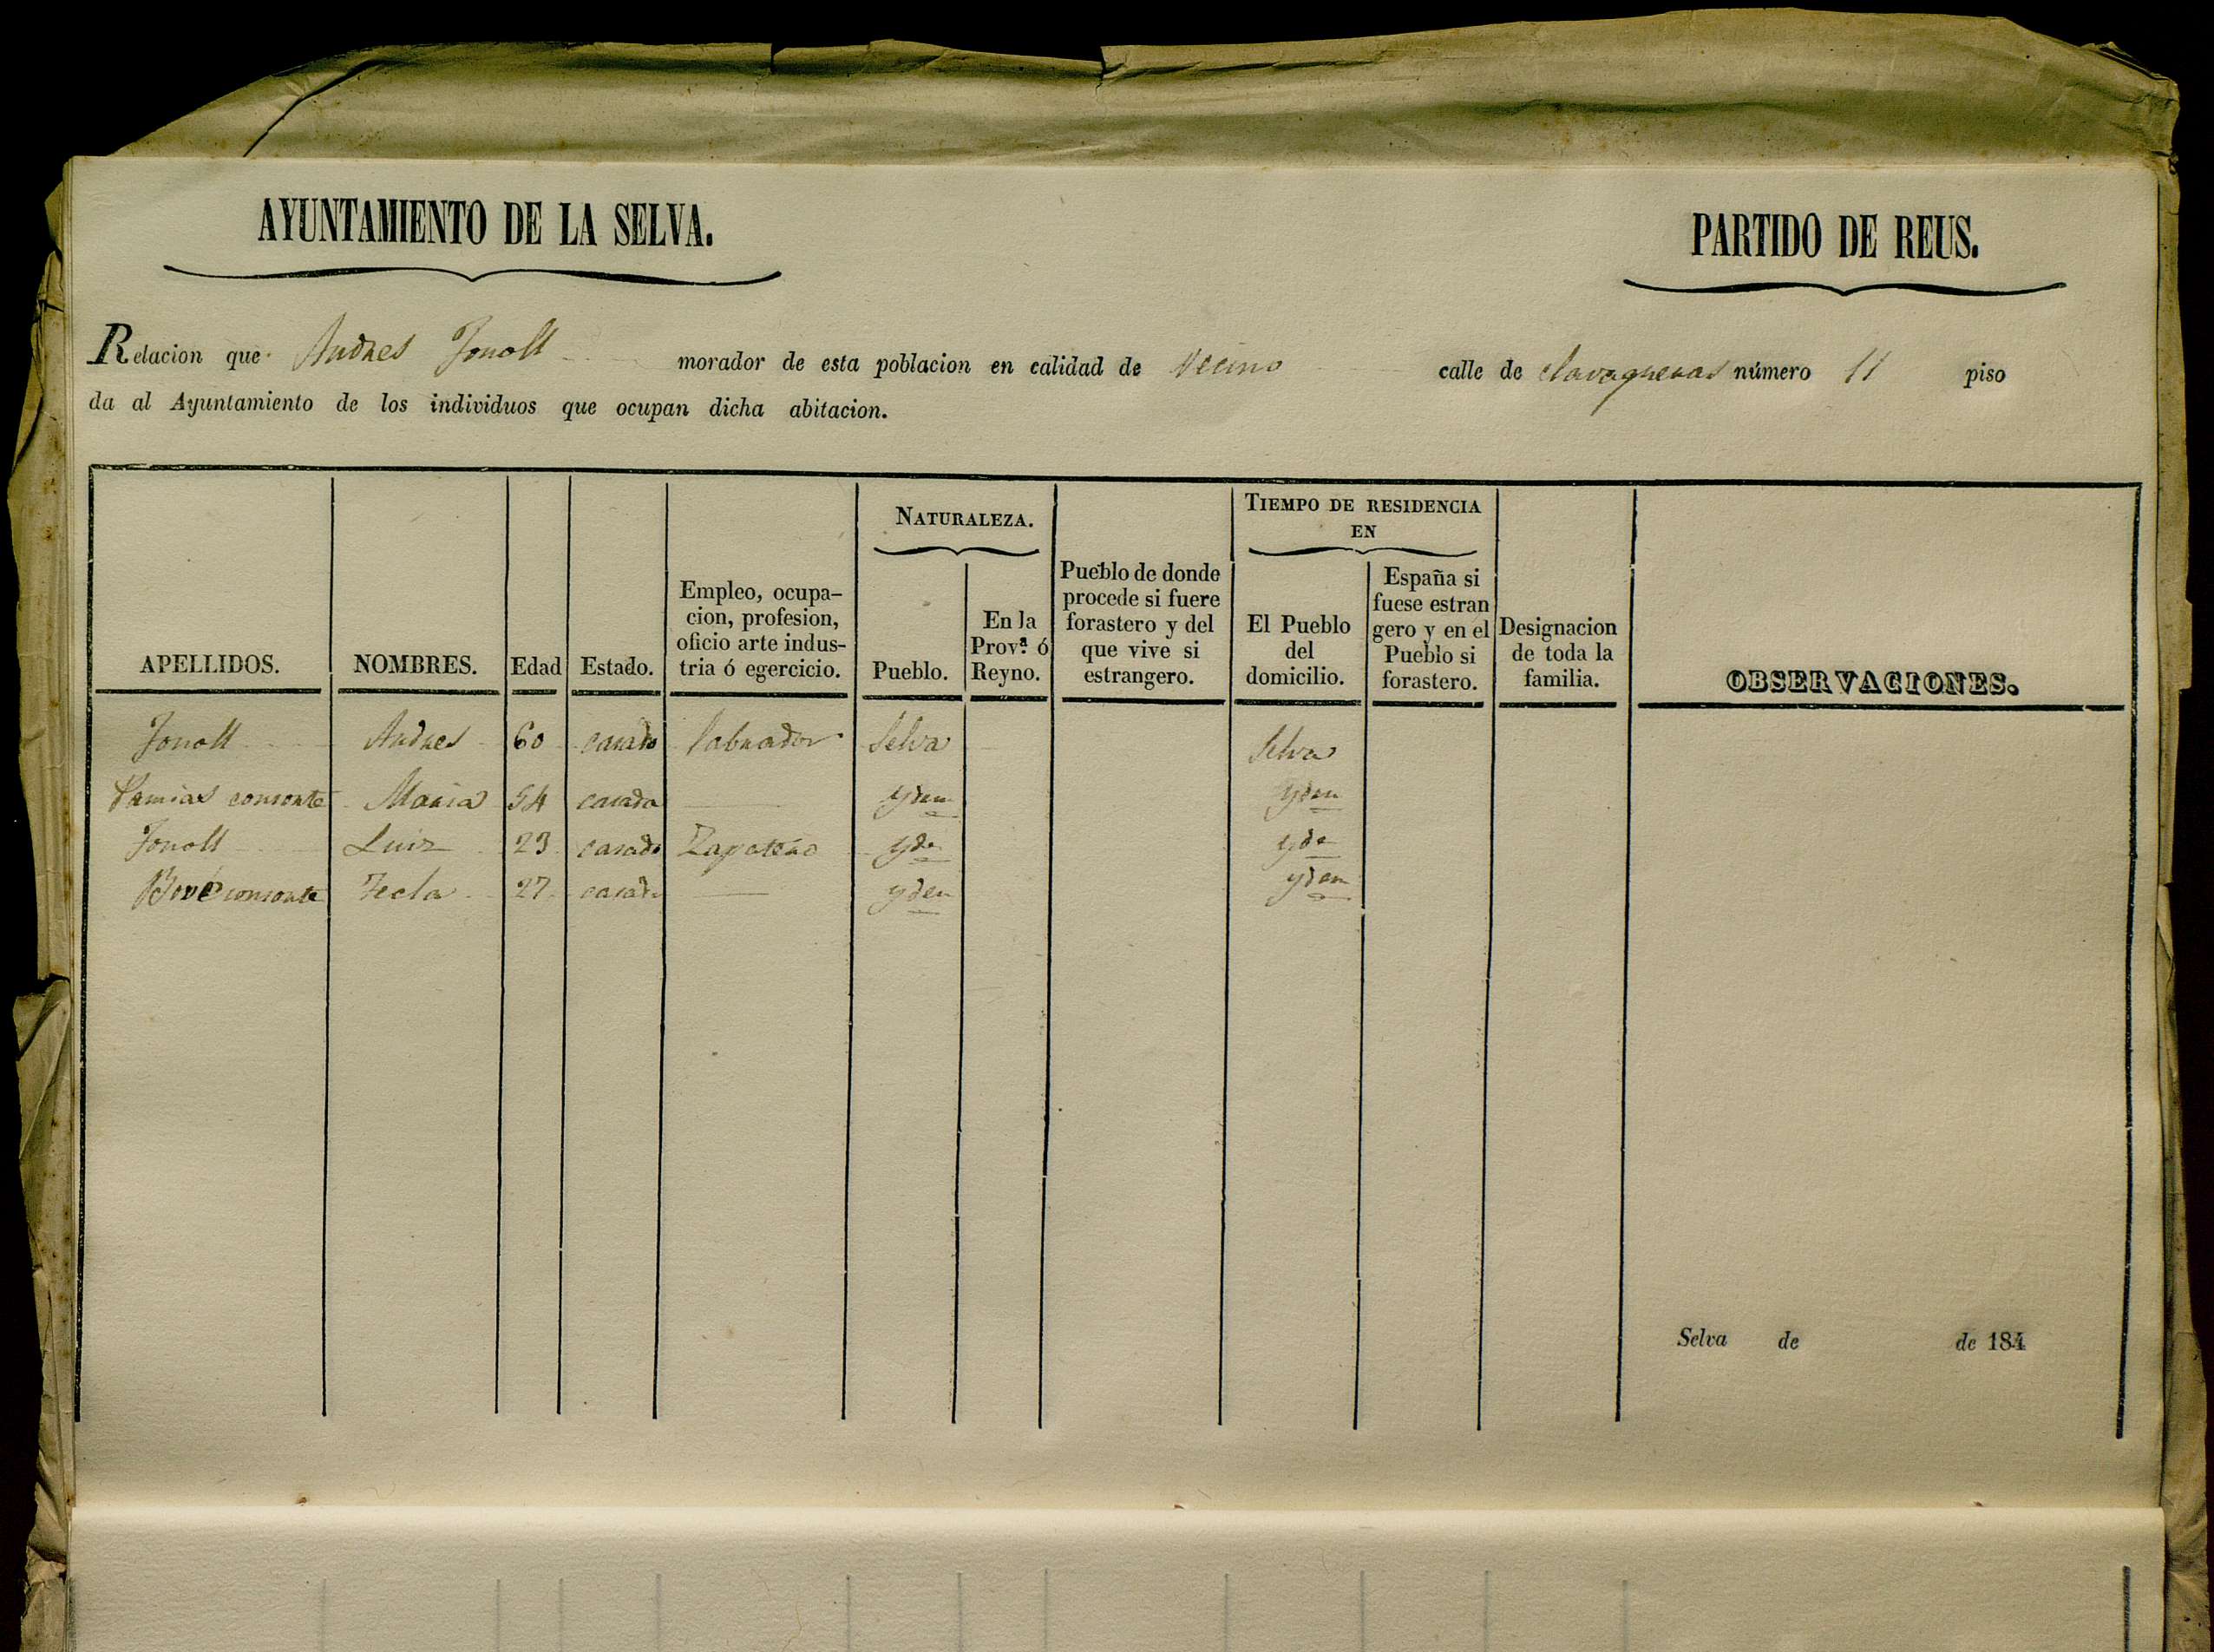 AYUNTAMIENTO DE LA SELVA.
PARTIDO DE REUS.
Relacion que Andres morador de esta poblacion en calidad de Vecino calle de número 11 piso
da al Ayuntamiento de los individuos que ocupan dicha abitacion.
NATURALEZA.
TIEMPO DE RESIDENCIA
EN
APELLIDOS.
NOMBRES.
Edad
Estado.
Empleo, ocupa-
cion, profesion,
oficio arte indus-
tria ó egercicio.
Pueblo.
En la
Prov.ª ó
Reyno.
Pueblo de donde
procede si fuere
forastero y del
que vive si
estrangero.
El Pueblo
del
domicilio.
España si
fuese estran
gero y en el
Pueblo si
forastero.
Designacion
de toda la
familia.
OBSERVACIONES.
Andres 60 casado labrador Selva Selva
consorte Maria 54 casada yden yden
Luis 23 casado Zapatero yde yde
Bové consorte Tecla 27 casada yden yden
Selva de de 184